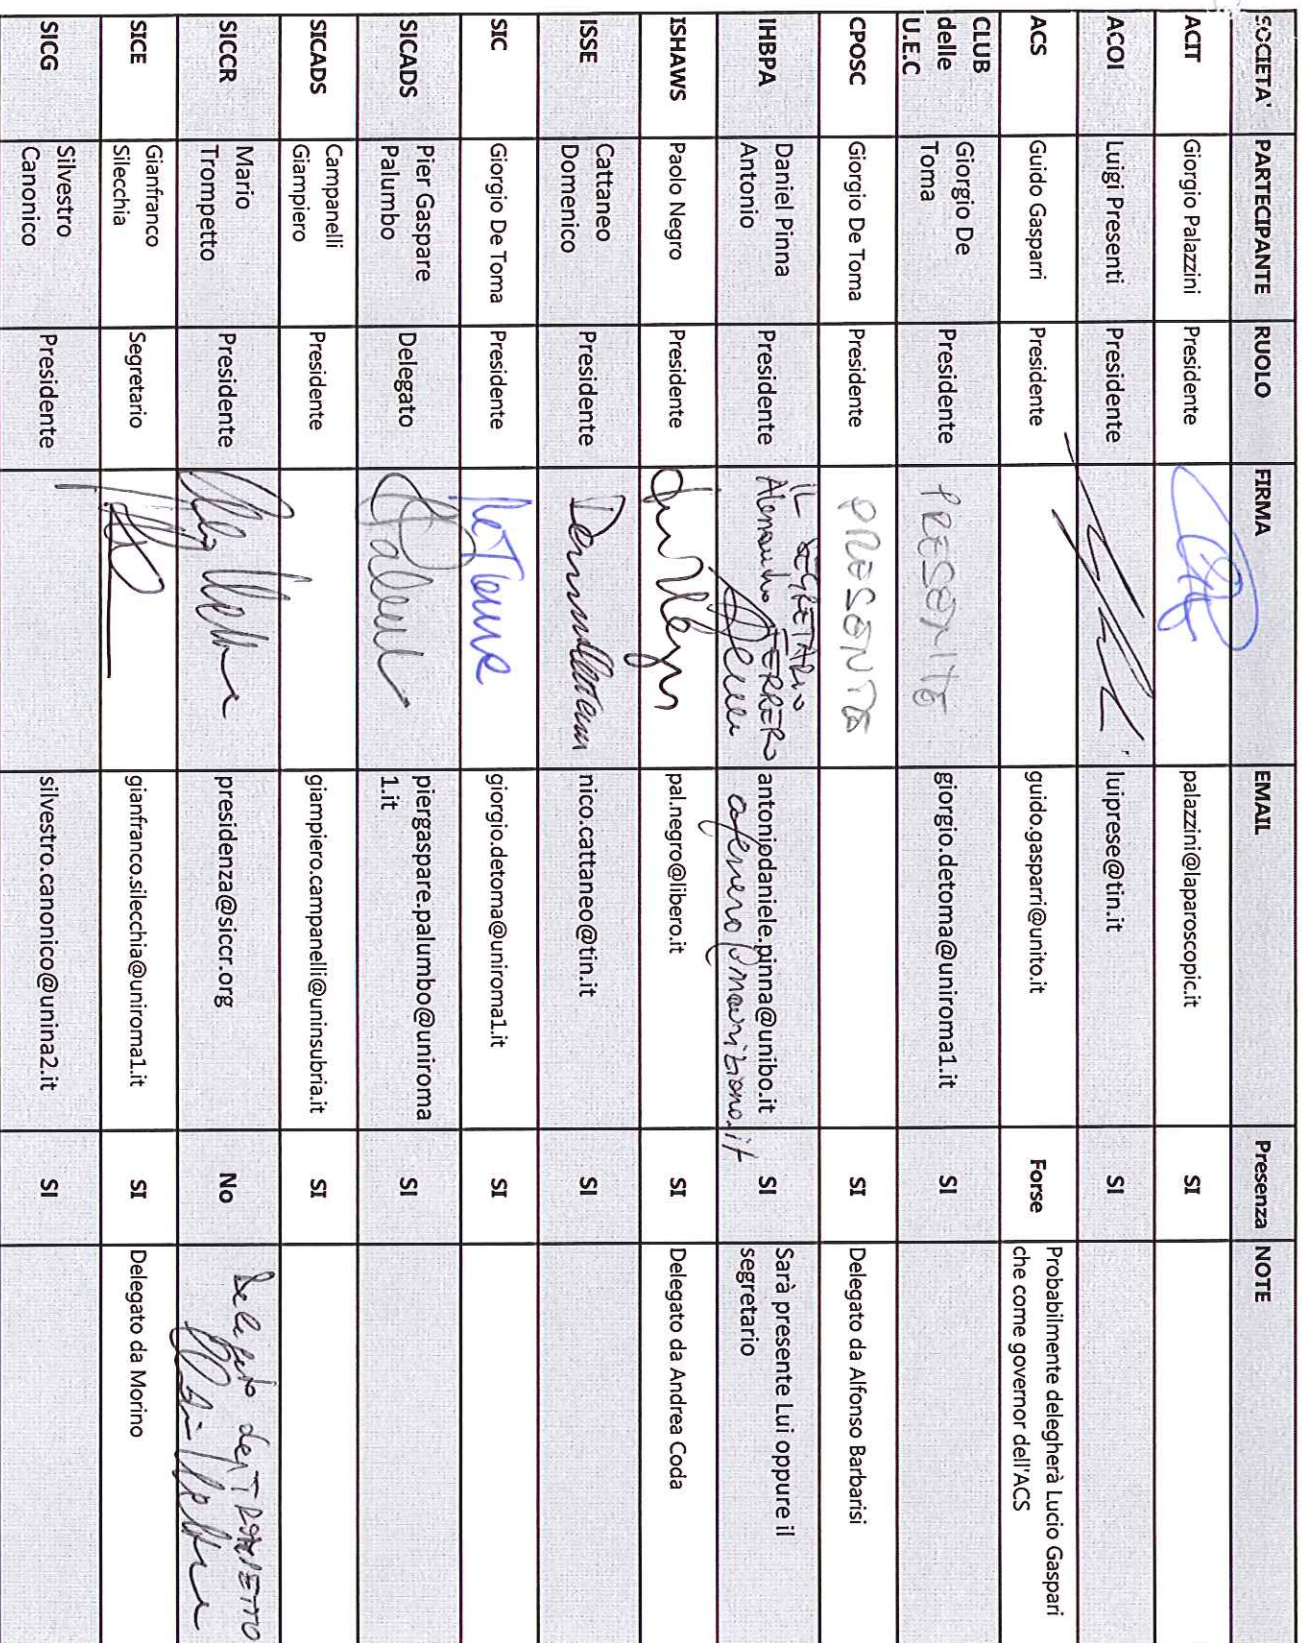 SOCIETA' PARTECIPANTE RUOLO FIRMA EMAIL Presenza NOTE
ACIT Giorgio Palazzini Presidente palazzini@laparoscopic.it SI
ACOI Luigi Presenti Presidente luiprese@tin.it SI
ACS Guido Gasparri Presidente guido.gasparri@unito.it Forse Probabilmente delegherà Lucio Gaspari
che come governor dell'ACS
CLUB
delle
U.E.C
Giorgio De
Toma
Presidente PRESENTE giorgio.detoma@uniroma1.it SI
CPOSC Giorgio De Toma Presidente PRESENTE SI Delegato da Alfonso Barbarisi
IHBPA Daniel Pinna
Antonio
Presidente IL SEGRETARIO
FERRERO
antoniodaniele.pinna@unibo.it
SI Sarà presente Lui oppure il
segretario
ISHAWS Paolo Negro Presidente pal.negro@libero.it SI Delegato da Andrea Coda
ISSE Cattaneo
Domenico
Presidente nico.cattaneo@tin.it SI
SIC Giorgio De Toma Presidente De Toma giorgio.detoma@uniroma1.it SI
SICADS Pier Gaspare
Palumbo
Delegato piergaspare.palumbo@uniroma
1.it
SI
SICADS Campanelli
Giampiero
Presidente giampiero.campanelli@uninsubria.it SI
SICCR Mario
Trompetto
Presidente presidenza@siccr.org No
SICE Gianfranco
Silecchia
Segretario gianfranco.silecchia@uniroma1.it SI Delegato da Morino
SICG Silvestro
Canonico
Presidente silvestro.canonico@unina2.it SI